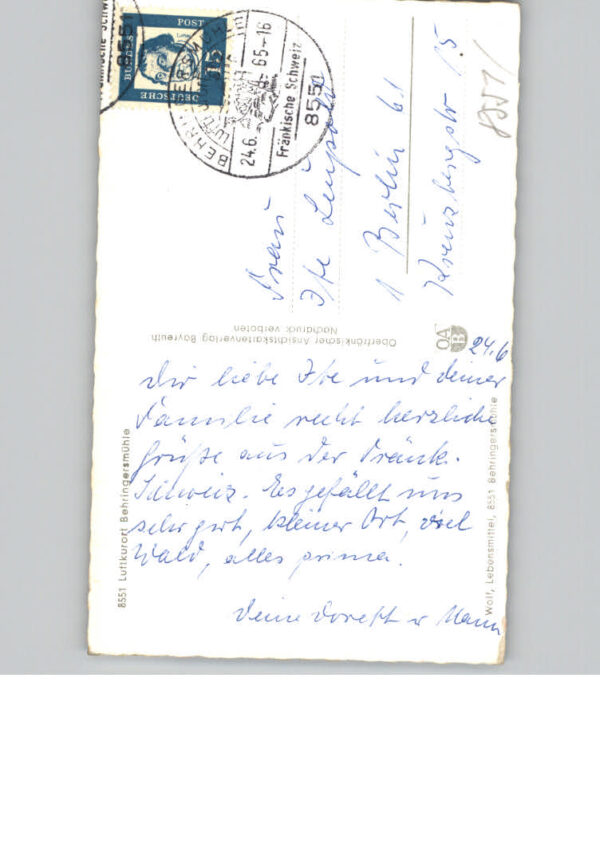 24.6
Dir liebe Ite und deiner
Familie recht herzliche
Grüße aus der Fränk.
Schweiz. Es gefällt uns
sehr gut, kleiner Ort, viel
Wald, alles prima.
Deine Dorett u Mann
Frau
Ite Leupold
1 Berlin 61
Kreuzbergstr 15
8551
DEUTSCHE
BUNDES
POST
15
BEHRINGERSMÜHLE
LUFTKURORT
24.6. 65-16
Fränkische Schweiz
8551
Fränkische Schweiz
8551
Oberfränkischer Ansichtskartenverlag Bayreuth
Nachdruck verboten
OA
B
8551 Luftkurort Behringersmühle
Wolf, Lebensmittel, 8551 Behringersmühle